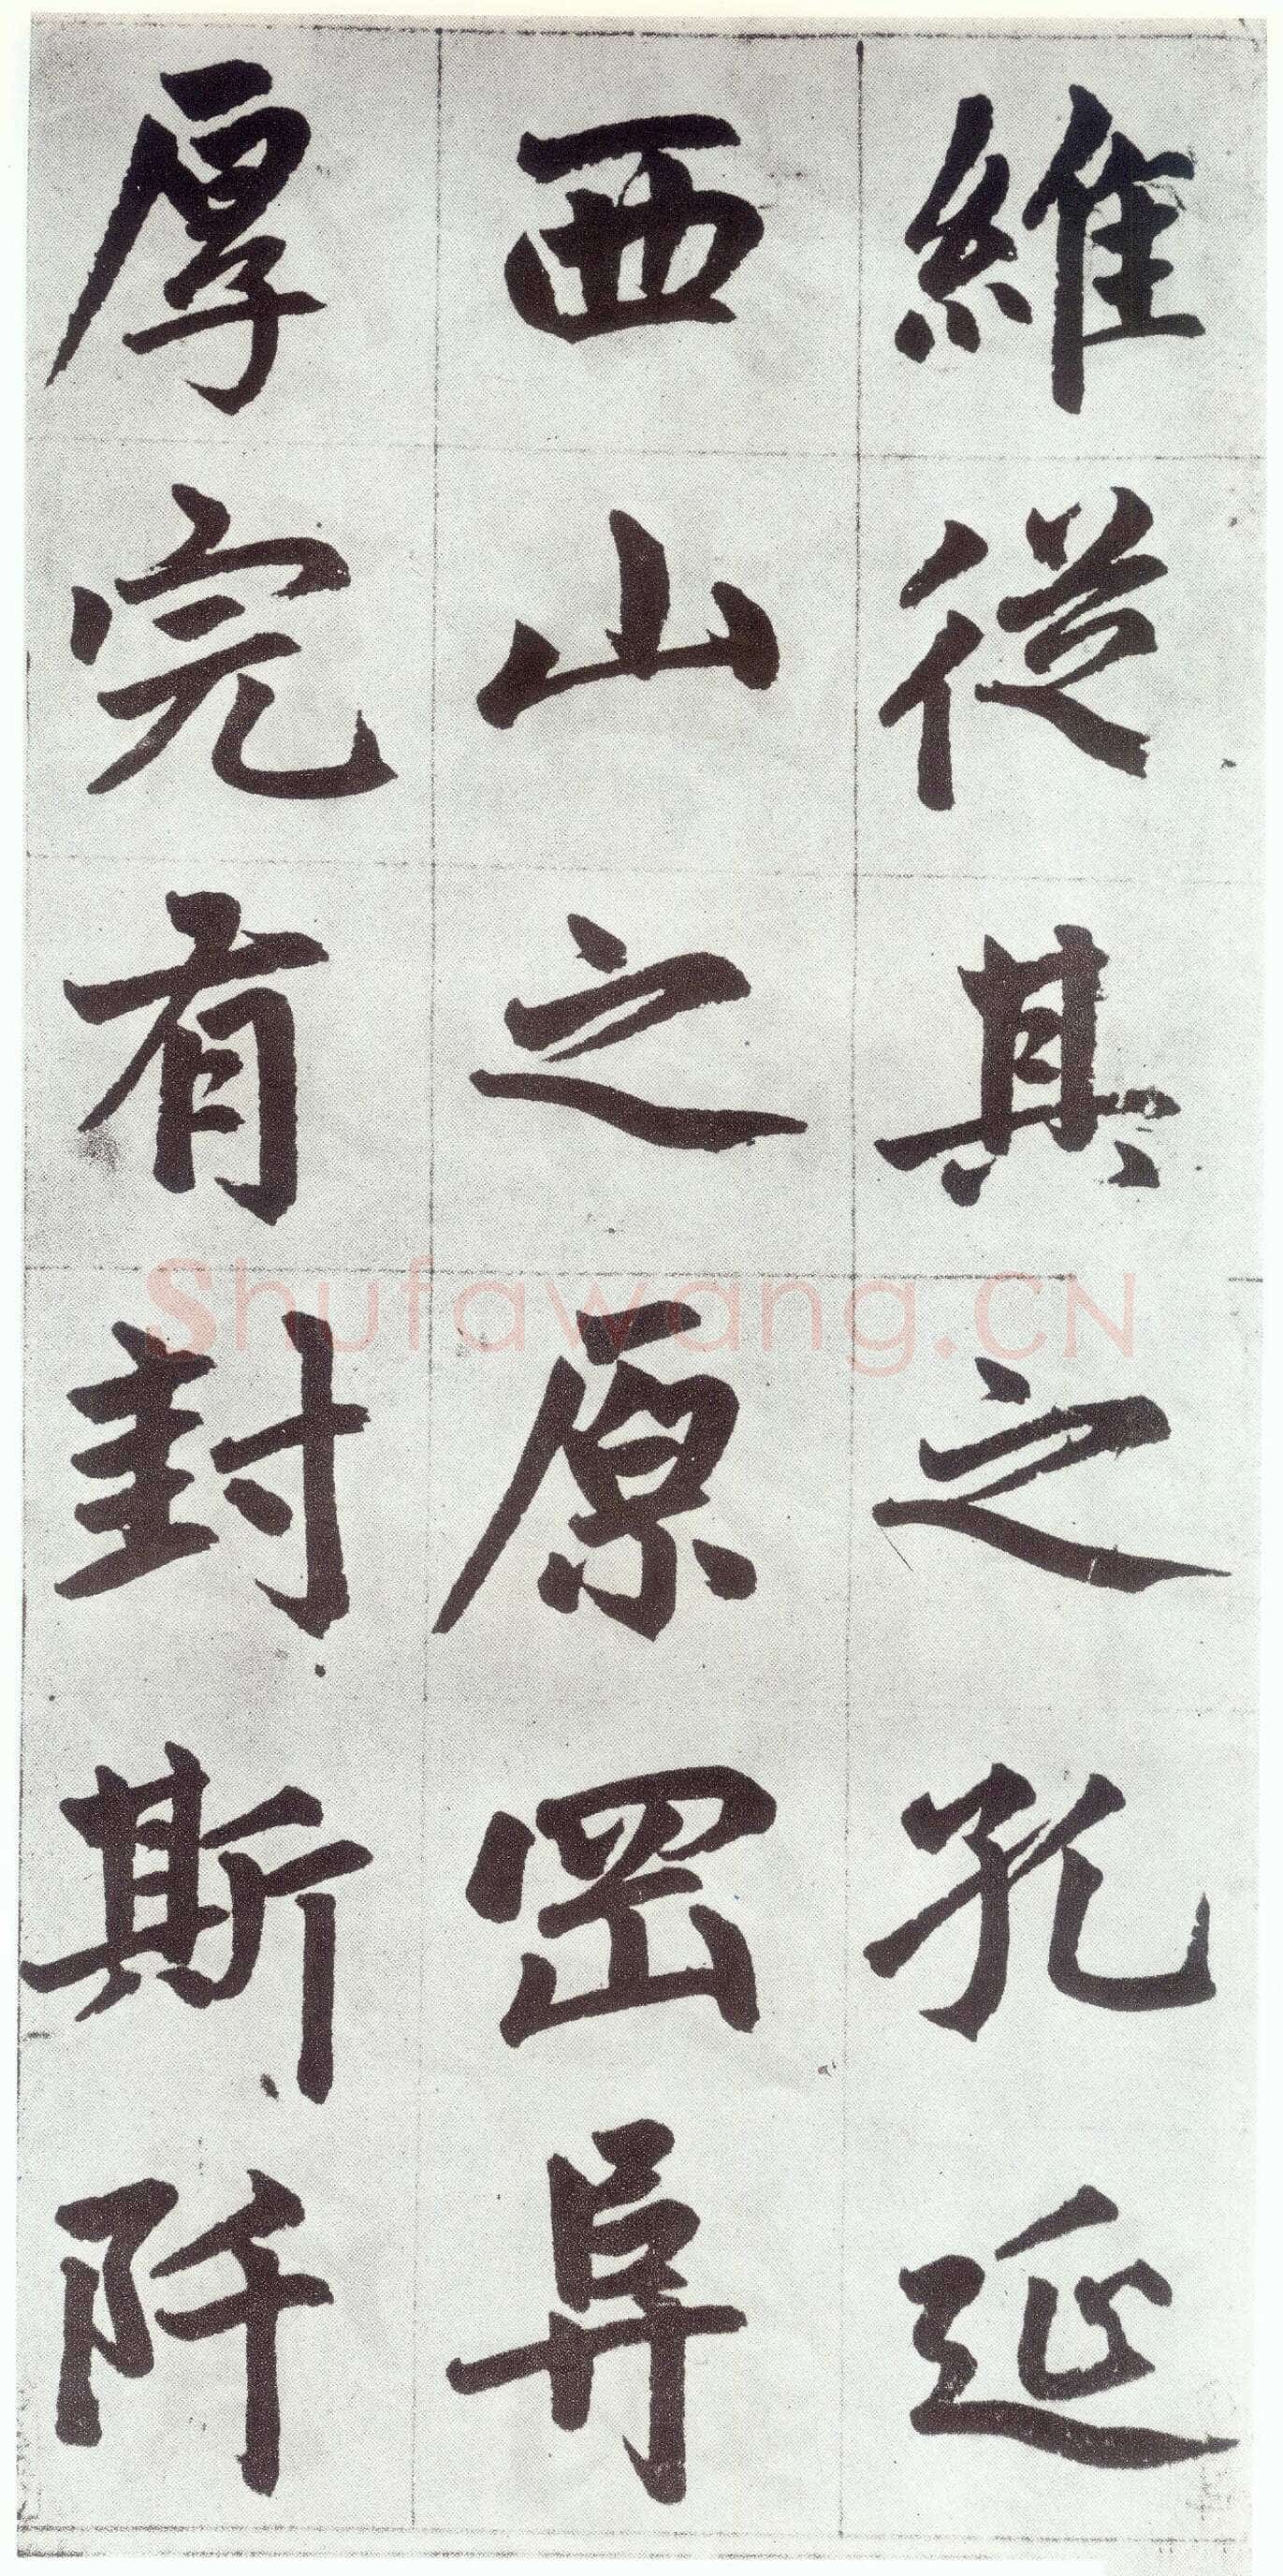 維從其之孔延
西山之原岡阜
厚完有封斯阡
Shufawang.CN